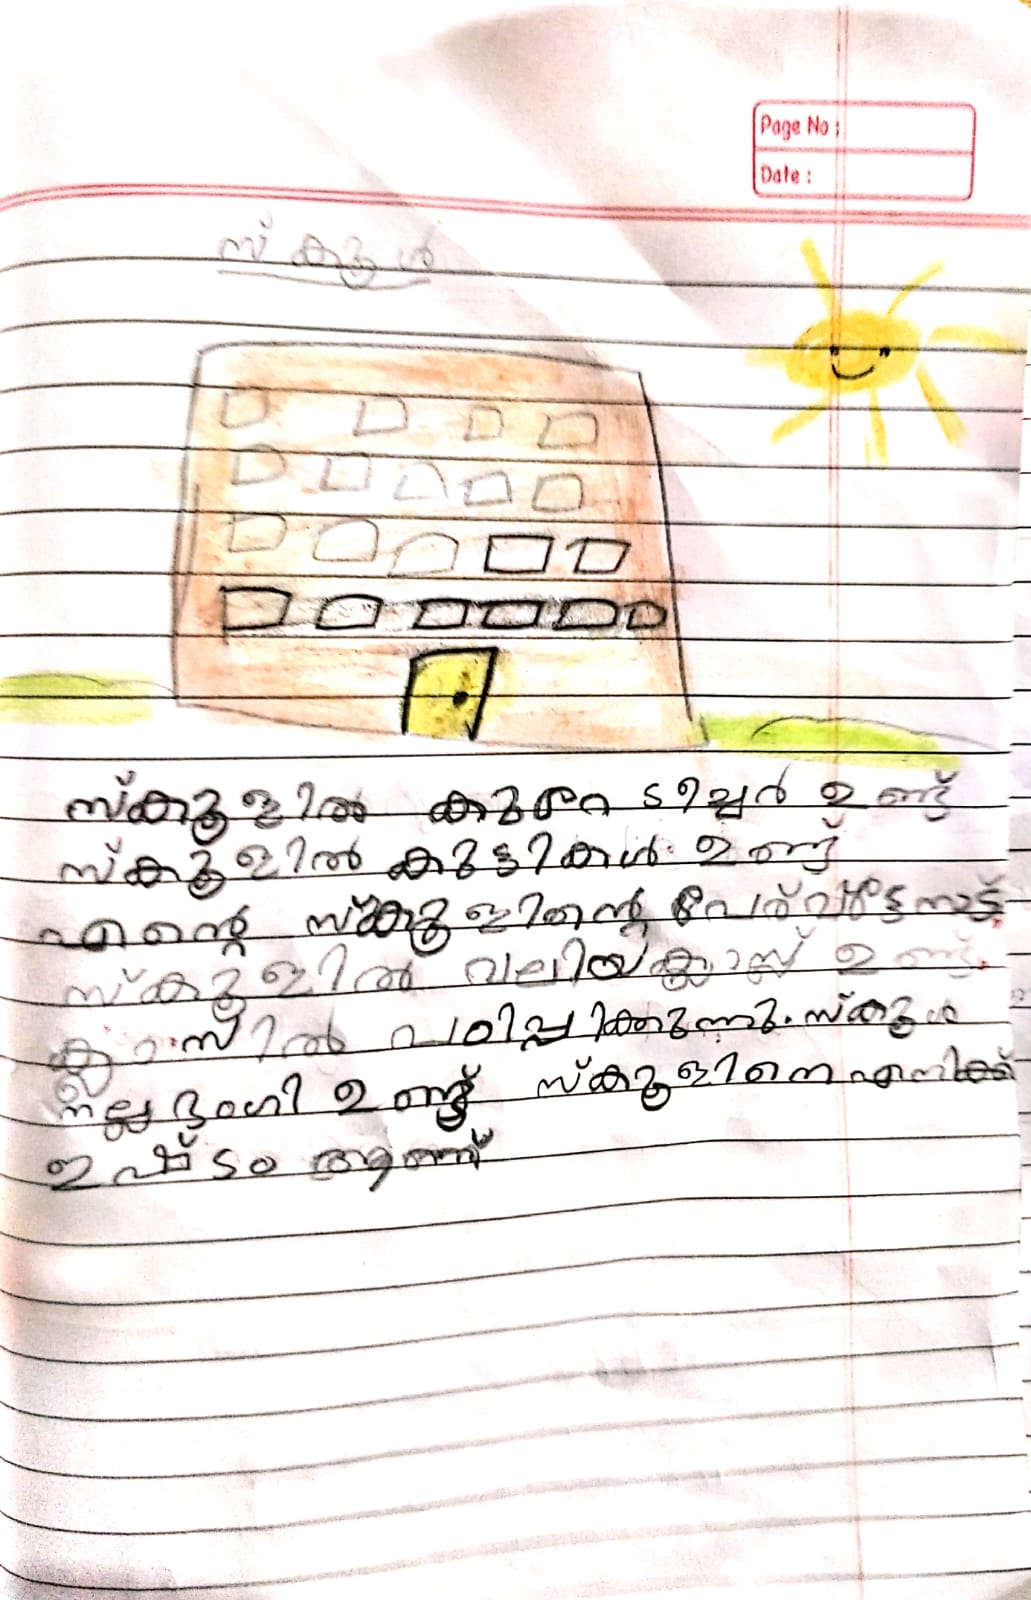 Page No :
Date :
സ്കൂൾ
സ്കൂളിൽ കുറെ ടീച്ചർ ഉണ്ട്
സ്കൂളിൽ കുട്ടികൾ ഉണ്ട്
എന്റെ സ്കൂളിന്റെ പേര്
സ്കൂളിൽ വലിയ ക്ലാസ്സ് ഉണ്ട്.
ക്ലാസിൽ പഠിപ്പിക്കുന്നു. സ്കൂൾ
നല്ല ഭംഗി ഉണ്ട് സ്കൂളിനെ എനിക്ക്
ഇഷ്ടം ആണ്